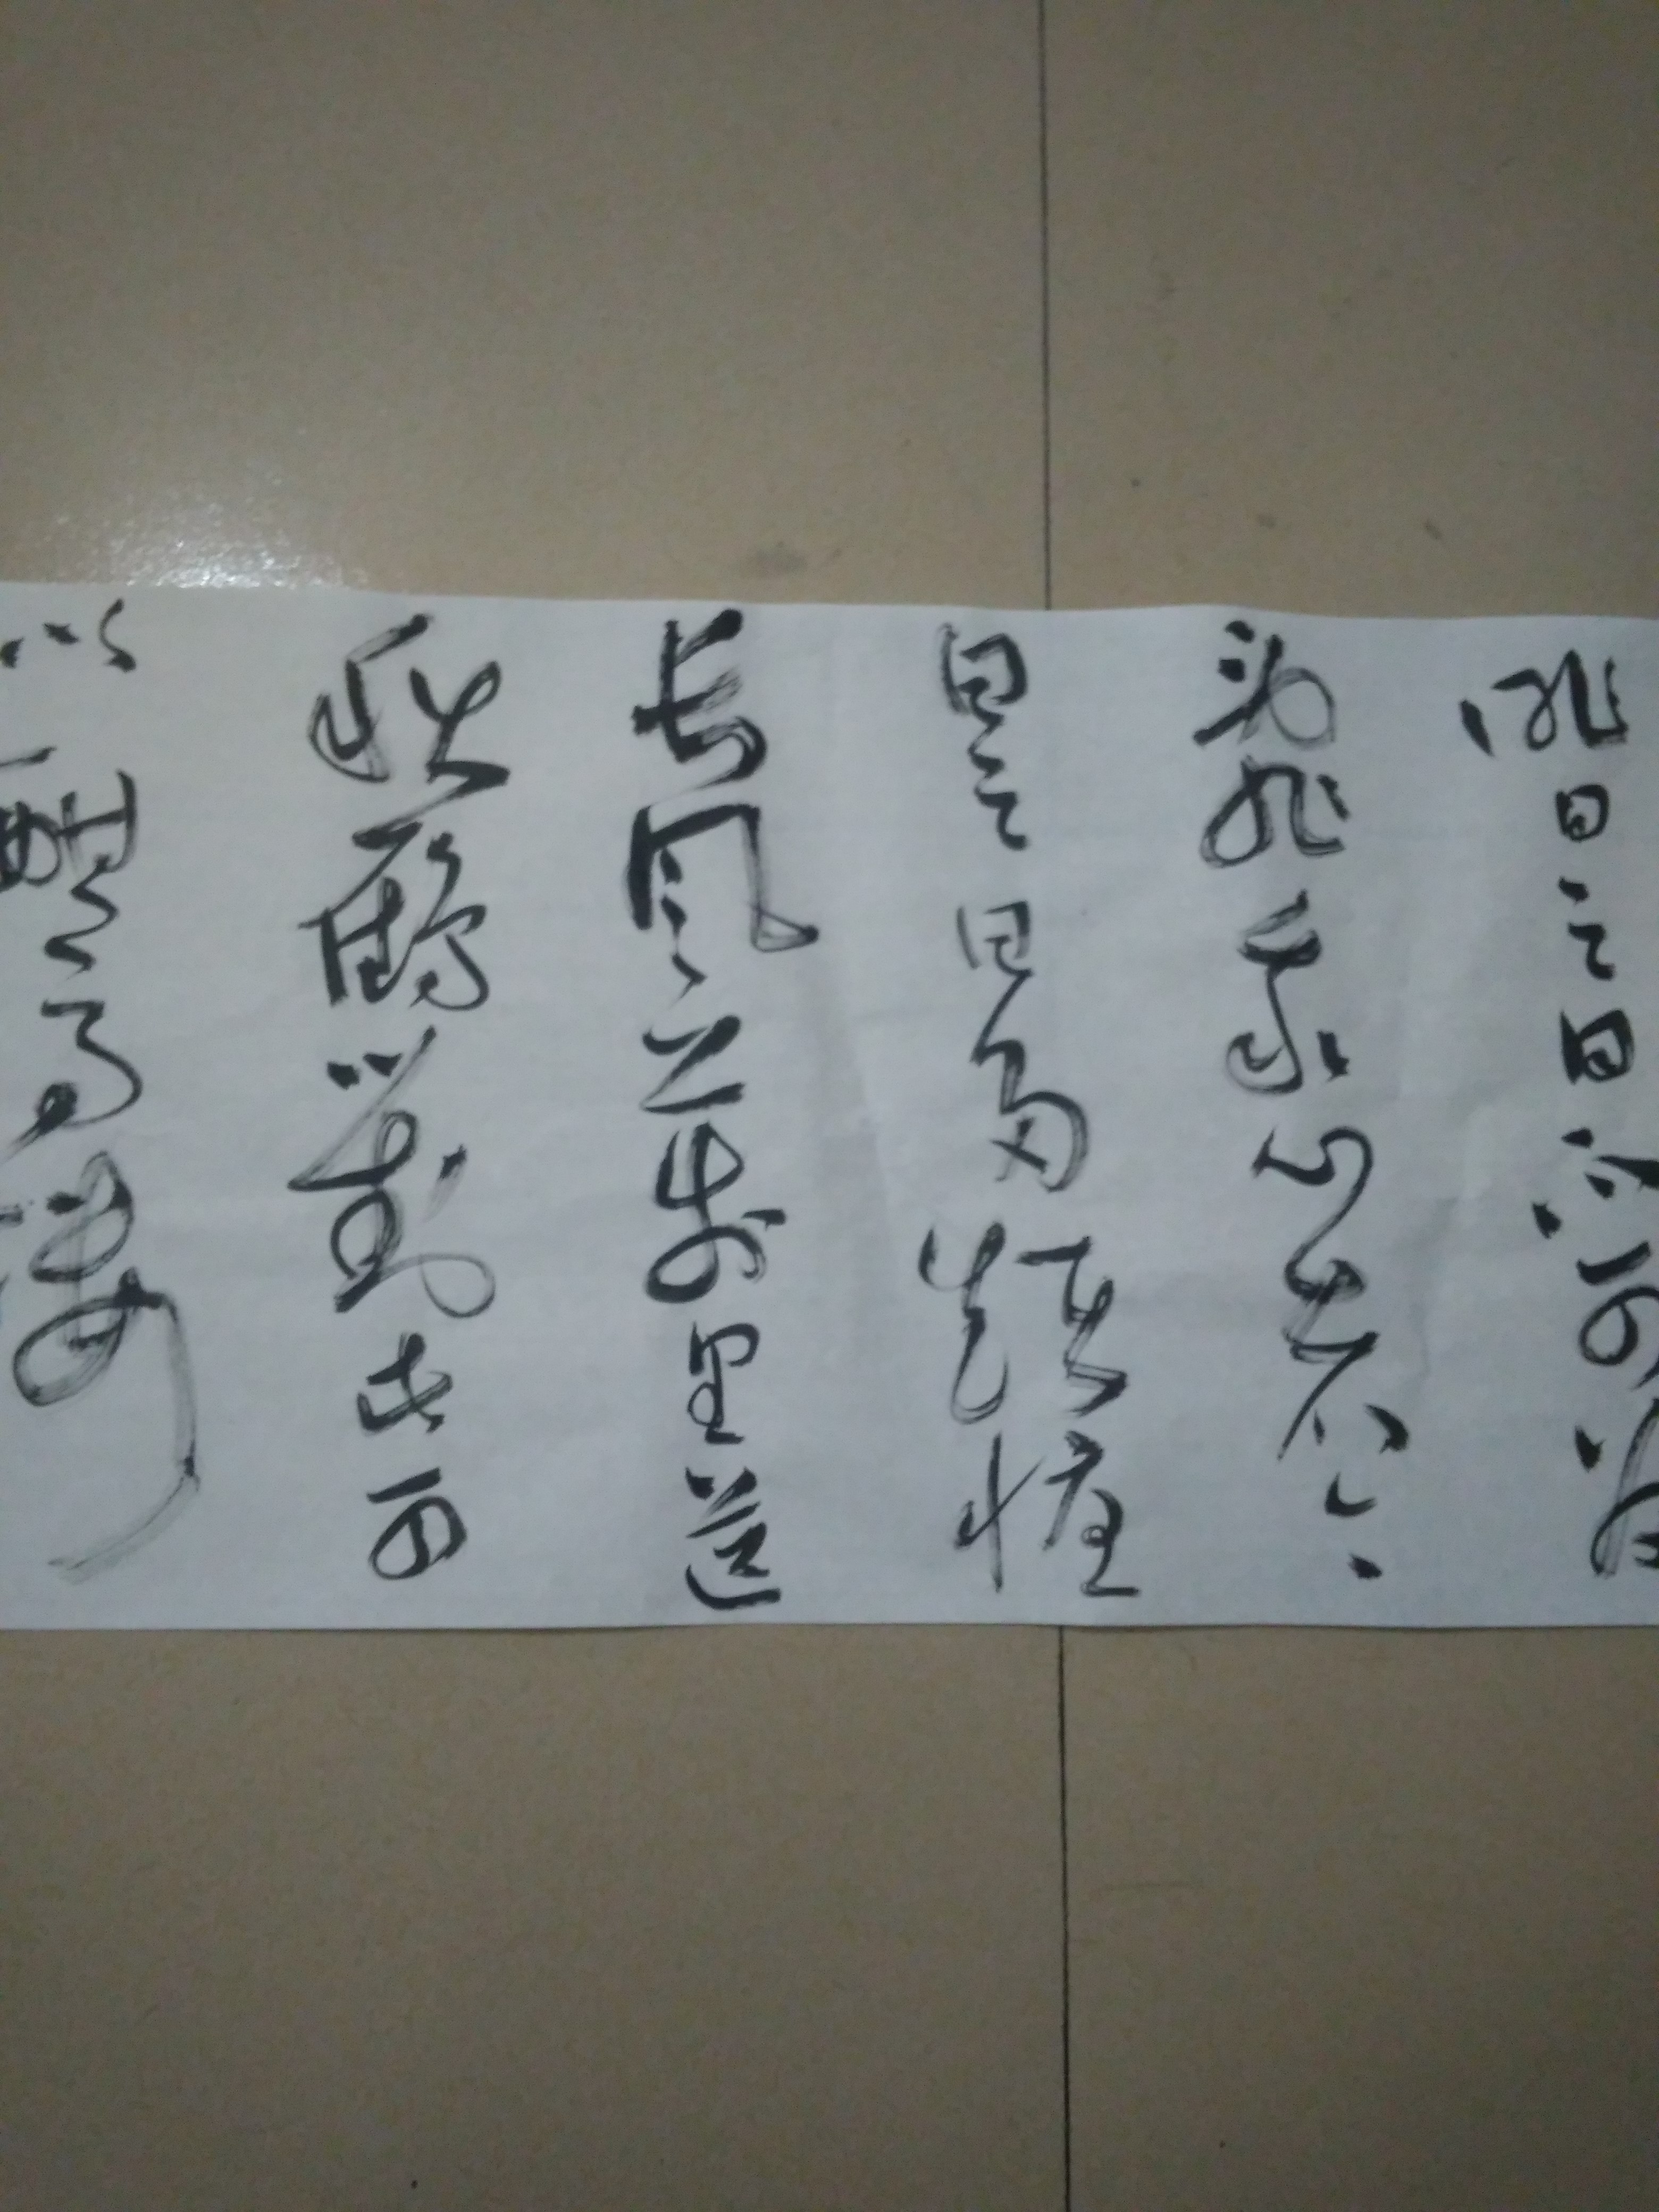 昨日之日不可留
亂我心者今
日之日多煩憂
長風萬里送
秋雁對此可
以酣高樓